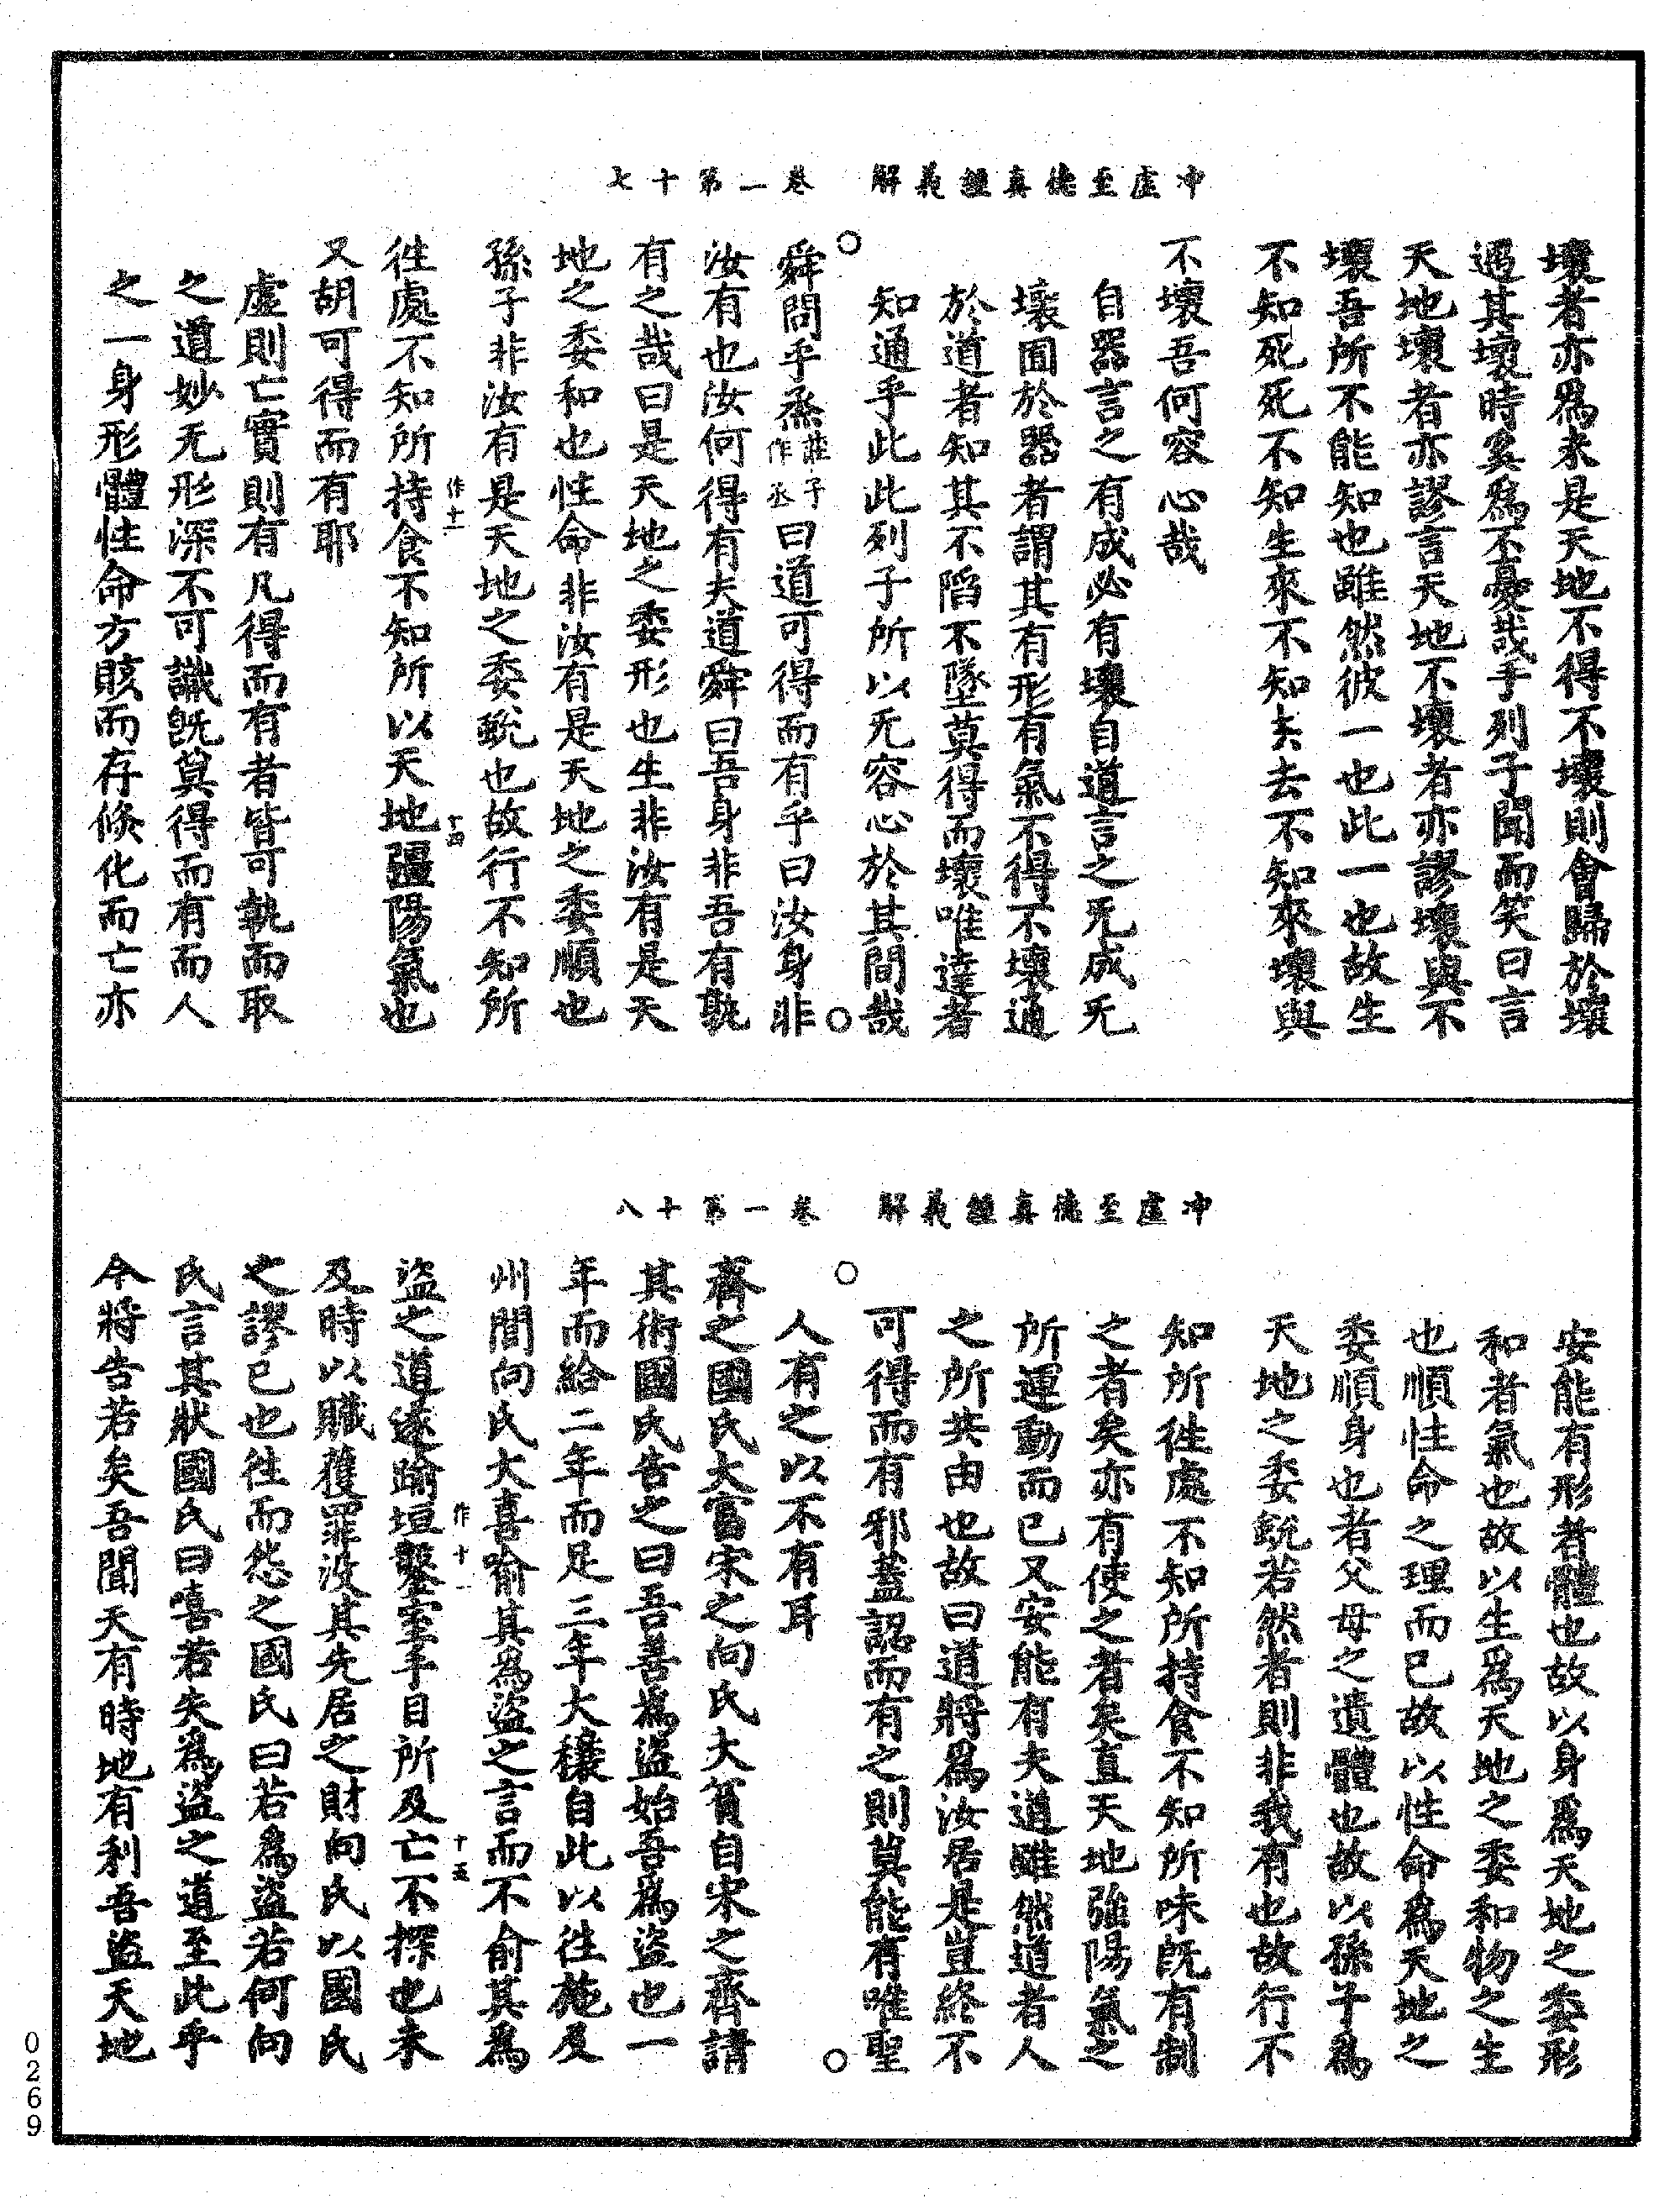 冲虛至德真經義解　卷一第十七
壞者亦爲未是天地不得不壞則會歸於壞
遇其壞時奚爲不憂哉子列子聞而笑曰言
天地壞者亦謬言天地不壞者亦謬壞與不
壞吾所不能知也雖然彼一也此一也故生
不知死死不知生來不知去去不知來壞與
不壞吾何容心哉
自器言之有成必有壞自道言之无成无
壞囿於器者謂其有形有氣不得不壞通
於道者知其不陷不墜莫得而壞唯達者
知通乎此此列子所以无容心於其間哉
舜問乎烝莊子作丞曰道可得而有乎曰汝身非
汝有也汝何得有夫道舜曰吾身非吾有孰
有之哉曰是天地之委形也生非汝有是天
地之委和也性命非汝有是天地之委順也
孫子非汝有是天地之委蛻也故行不知所
作十一　十四
往處不知所持食不知所以天地彊陽氣也
又胡可得而有耶
虛則亡實則有凡得而有者皆可執而取
之道妙无形深不可識旣莫得而有而人
之一身形體性命方賅而存倏化而亡亦
冲虛至德真經義解　卷一第十八
安能有形者體也故以身爲天地之委形
和者氣也故以生爲天地之委和物之生
也順性命之理而已故以性命爲天地之
委順身也者父母之遺體也故以孫子爲
天地之委蛻若然者則非我有也故行不
知所往處不知所持食不知所味旣有制
之者矣亦有使之者矣直天地強陽氣之
所運動而已又安能有夫道雖然道者人
之所共由也故曰道將爲汝居是豈終不
可得而有邪蓋認而有之則莫能有唯聖
人有之以不有耳
齊之國氏大富宋之向氏大貧自宋之齊請
其術國氏告之曰吾善爲盜始吾爲盜也一
年而給二年而足三年大穰自此以往施及
州閭向氏大喜喻其爲盜之言而不俞其爲
作十一　十五
盜之道遂踰垣鑿室手目所及亡不探也未
及時以贓獲罪沒其先居之財向氏以國氏
之謬已也往而怨之國氏曰若爲盜若何向
氏言其狀國氏曰嘻若失爲盜之道至此乎
今將告若矣吾聞天有時地有利吾盜天地
0269